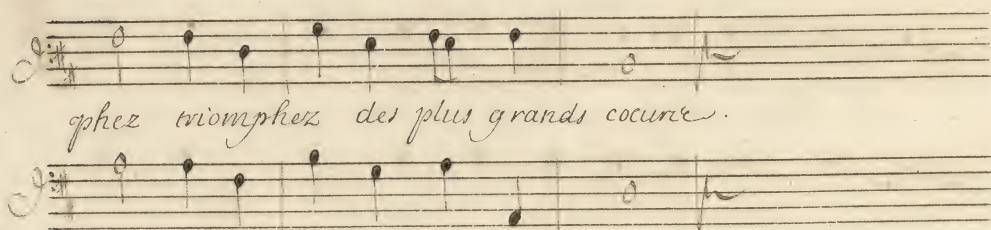 phez triomphez des plus grands cœurs.